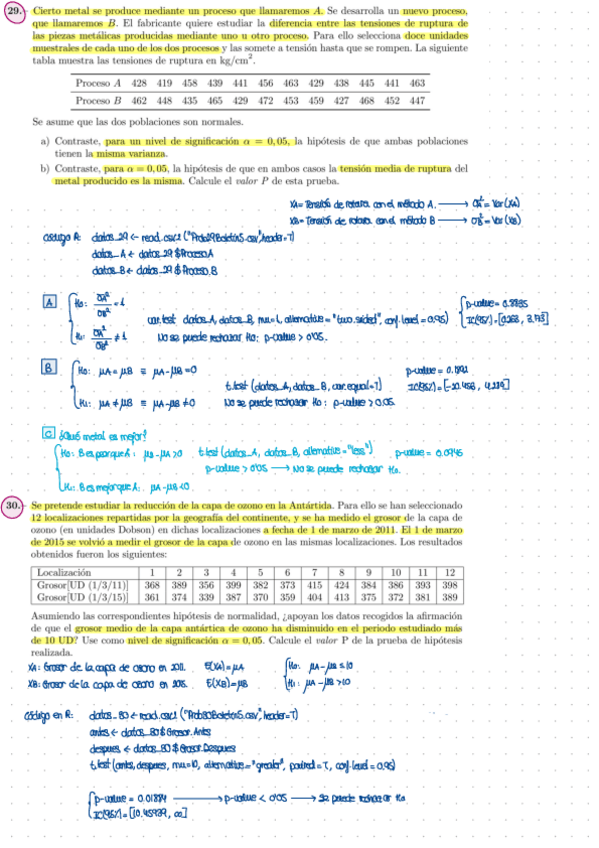 29.- Cierto metal se produce mediante un proceso que llamaremos A. Se desarrolla un nuevo proceso,
que llamaremos B. El fabricante quiere estudiar la diferencia entre las tensiones de ruptura de
las piezas metálicas producidas mediante uno u otro proceso. Para ello selecciona doce unidades
muestrales de cada uno de los dos procesos y las somete a tensión hasta que se rompen. La siguiente
tabla muestra las tensiones de ruptura en kg/cm².
Proceso A 428 419 458 439 441 456 463 429 438 445 441 463
Proceso B 462 448 435 465 429 472 453 459 427 468 452 447
Se asume que las dos poblaciones son normales.
a) Contraste, para un nivel de significación α = 0,05, la hipótesis de que ambas poblaciones
tienen la misma varianza.
b) Contraste, para α = 0,05, la hipótesis de que en ambos casos la tensión media de ruptura del
metal producido es la misma. Calcule el valor P de esta prueba.
XA= Tensión de rotura con el método A. → σA² = Var (XA)
XB= Tensión de rotura con el método B → σB² = Var (XB)
Código R: datos_29 <- read.csv2 ("Prob29Boletin5.csv", header=T)
datos_A <- datos_29 $Proceso.A
datos_B <- datos_29 $ Proceso.B
A H0: σA²/σB² = 1
var.test datos_A, datos_B, mu=1, alternative = "two.sided", conf.level = 0.95)
H1: σA²/σB² ≠ 1 No se puede rechazar H0: p-value > 0'05.
B H0: μA = μB ≡ μA-μB =0
t.test (datos_A, datos_B, var.equal=T)
H1: μA ≠ μB ≡ μA-μB ≠0 No se puede rechazar H0: p-value > 0.05.
C ¿Qué metal es mejor?
H0: B es peor que A: μB-μA >0 t.test (datos_A, datos_B, alternative="less") p-value = 0.0946
p-value > 0'05 → No se puede rechazar H0.
H1: B es mejor que A: μA-μB <0
30.- Se pretende estudiar la reducción de la capa de ozono en la Antártida. Para ello se han seleccionado
12 localizaciones repartidas por la geografía del continente, y se ha medido el grosor de la capa de
ozono (en unidades Dobson) en dichas localizaciones a fecha de 1 de marzo de 2011. El 1 de marzo
de 2015 se volvió a medir el grosor de la capa de ozono en las mismas localizaciones. Los resultados
obtenidos fueron los siguientes:
Localización 1 2 3 4 5 6 7 8 9 10 11 12
Grosor[UD (1/3/11)] 368 389 356 399 382 373 415 424 384 386 393 398
Grosor[UD (1/3/15)] 361 374 339 387 370 359 404 413 375 372 381 389
Asumiendo las correspondientes hipótesis de normalidad, ¿apoyan los datos recogidos la afirmación
de que el grosor medio de la capa antártica de ozono ha disminuido en el periodo estudiado más
de 10 UD? Use como nivel de significación α = 0,05. Calcule el valor P de la prueba de hipótesis
realizada.
XA: Grosor de la capa de ozono en 2011. E(XA)=μA H0: μA-μB ≤10
XB: Grosor de la capa de ozono en 2015. E(XB)=μB H1: μA-μB >10
Código en R: datos_30 <- read.csv2 ("Prob30Boletin5.csv", header=T)
antes <- datos_30 $ Grosor.Antes
despues <- datos_30 $ Grosor.Despues
t.test (antes, despues, mu=10, alternative="greater", paired = T, conf.level = 0.95)
p-value = 0.01884 → p-value < 0'05 → Se puede rechazar H0
IC(95%) = [10.45939, ∞]